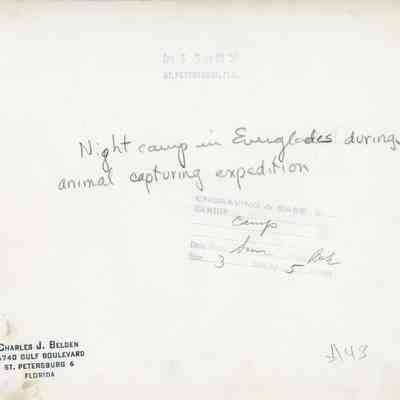 ST. PETERSBURG, FLA.
Night camp in Everglades during
animal capturing expedition
ENGRAVING & BASE
camp
Sun
3 5
CHARLES J. BELDEN
4740 GULF BOULEVARD
ST. PETERSBURG 6
FLORIDA
A43